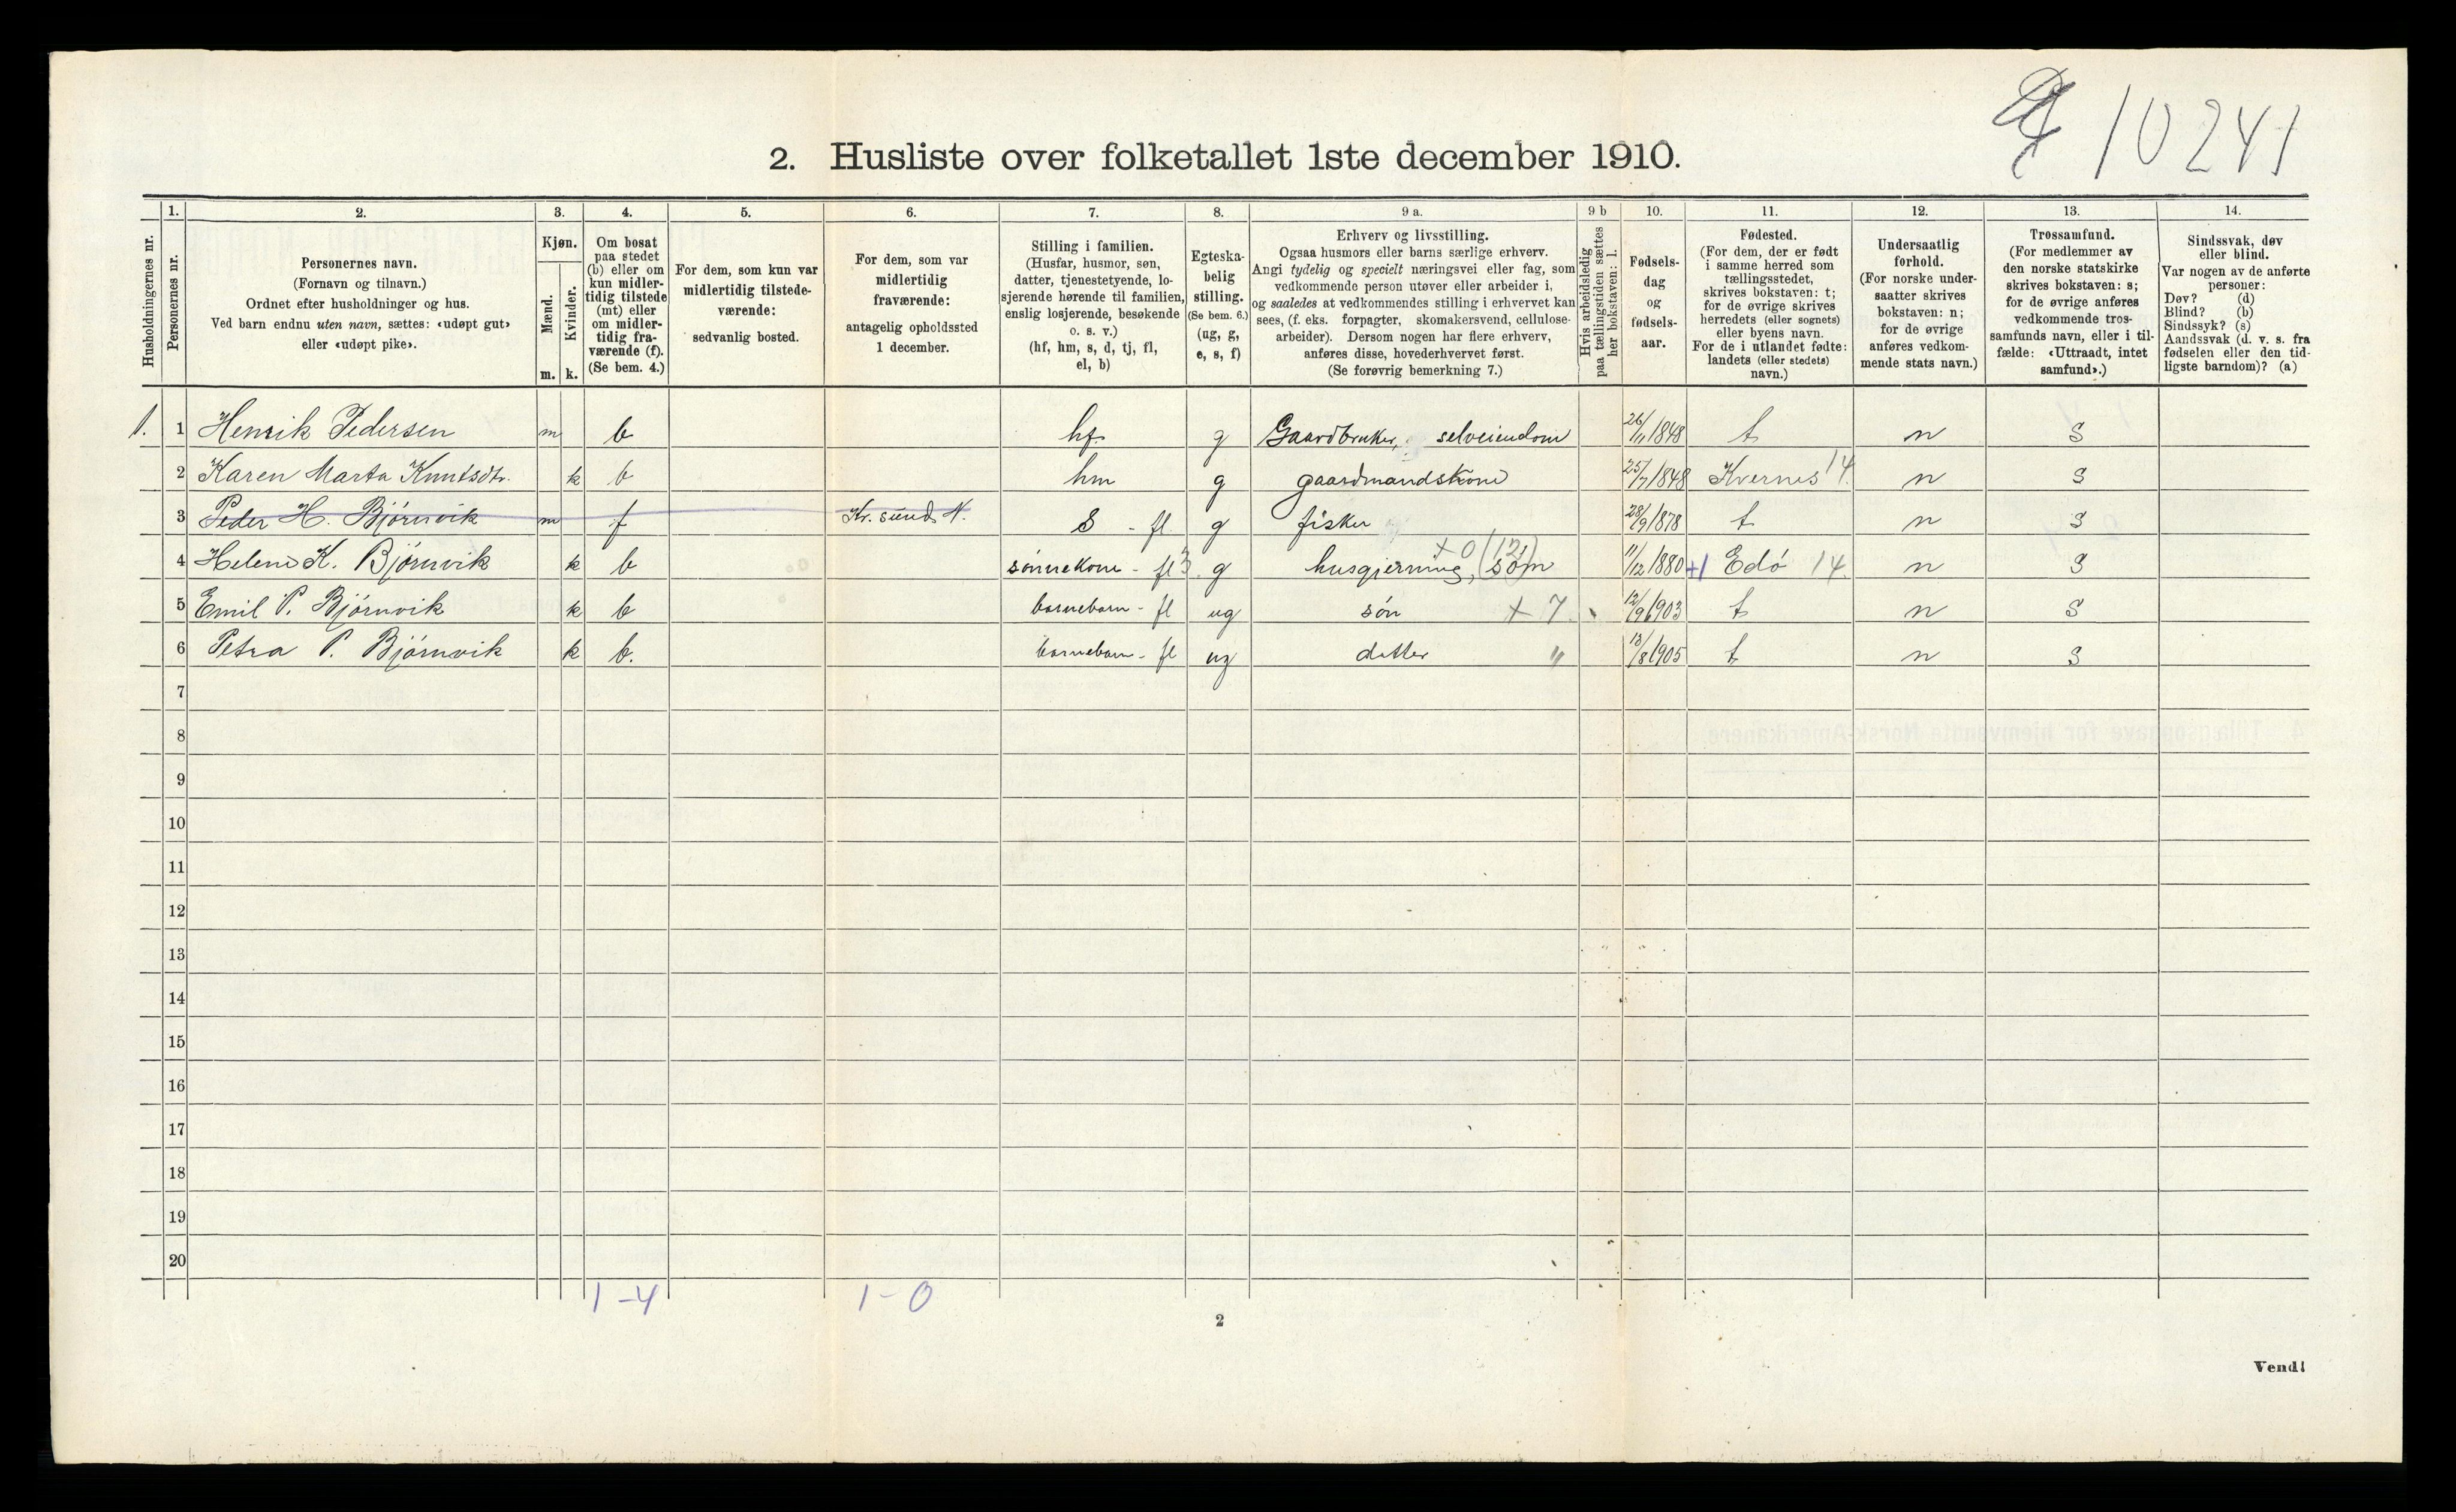 10241
2. Husliste over folketallet 1ste december 1910.
Husholdningernes nr.
1. Personernes nr.
2. Personernes navn.
(Fornavn og tilnavn.)
Ordnet efter husholdninger og hus.
Ved barn endnu uten navn, sættes: «udøpt gut»
eller «udøpt pike».
3. Kjøn.
Mænd. m.
Kvinder. k.
4. Om bosat
paa stedet
(b) eller om
kun midler-
tidig tilstede
(mt) eller
om midler-
tidig fra-
værende (f).
(Se bem. 4.)
5. For dem, som kun var
midlertidig tilstede-
værende:
sedvanlig bosted.
6. For dem, som var
midlertidig
fraværende:
antagelig opholdssted
1 december.
7. Stilling i familien.
(Husfar, husmor, søn,
datter, tjenestetyende, lo-
sjerende hørende til familien,
enslig losjerende, besøkende
o. s. v.)
(hf, hm, s, d, tj, fl,
el, b)
8. Egteska-
belig
stilling.
(Se bem. 6.)
(ug, g,
e, s, f)
9 a. Erhverv og livsstilling.
Ogsaa husmors eller barns særlige erhverv.
Angi tydelig og specielt næringsvei eller fag, som
vedkommende person utøver eller arbeider i,
og saaledes at vedkommendes stilling i erhvervet kan
sees, (f. eks. forpagter, skomakersvend, cellulose-
arbeider). Dersom nogen har flere erhverv,
anføres disse, hovederhvervet først.
(Se forøvrig bemerkning 7.)
9 b Hvis arbeidsledig
paa tællingstiden sættes
her bokstaven: l.
10. Fødsels-
dag
og
fødsels-
aar.
11. Fødested.
(For dem, der er født
i samme herred som
tællingsstedet,
skrives bokstaven: t;
for de øvrige skrives
herredets (eller sognets)
eller byens navn.
For de i utlandet fødte:
landets (eller stedets)
navn.)
12. Undersaatlig
forhold.
(For norske under-
saatter skrives
bokstaven: n;
for de øvrige
anføres vedkom-
mende stats navn.)
13. Trossamfund.
(For medlemmer av
den norske statskirke
skrives bokstaven: s;
for de øvrige anføres
vedkommende tros-
samfunds navn, eller i til-
fælde: «Uttraadt, intet
samfund».)
14. Sindssvak, døv
eller blind.
Var nogen av de anførte
personer:
Døv? (d)
Blind? (b)
Sindssyk? (s)
Aandssvak (d. v. s. fra
fødselen eller den tid-
ligste barndom)? (a)
1. 1 Henrik Pedersen m b hf g Gaardbruker, selveiendom 26/11 1848 t n S
2 Karen Marta Knutsdtr. k b hm g gaardmandskone 25/7 1848 Kvernes 14. n S
3 Peder H. Bjørnvik m f Kr.sund N. S - fl g fisker 28/9 1878 t n S
4 Helene K. Bjørnvik k b sønnekone - fl 3. g husgjerning, søm +0 (12) 11/12 1880 +1 Edø 14. n S
5 Emil P. Bjørnvik k b barnebarn - fl ug søn + 7. 12/9 1903 t n S
6 Petra P. Bjørnvik k b. barnebarn - fl ug datter " 13/8 1905 t n S
7
8
9
10
11
12
13
14
15
16
17
18
19
20
1 - 4 1 - 0
2
Vend!